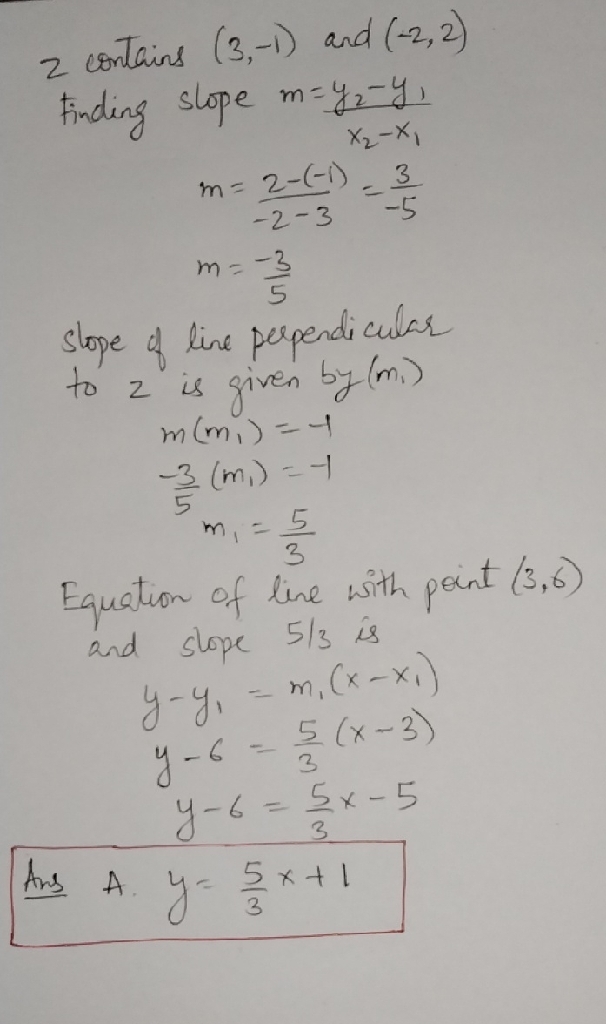 z contains (3,-1) and (-2,2)
Finding slope m = y₂-y₁ / x₂-x₁
m = 2-(-1) / -2-3 = 3/-5
m = -3/5
slope of line perpendicular
to z is given by (m₁)
m(m₁) = -1
-3/5 (m₁) = -1
m₁ = 5/3
Equation of line with point (3,6)
and slope 5/3 is
y-y₁ = m₁(x-x₁)
y-6 = 5/3 (x-3)
y-6 = 5/3 x-5
Ans A. y = 5/3 x+1